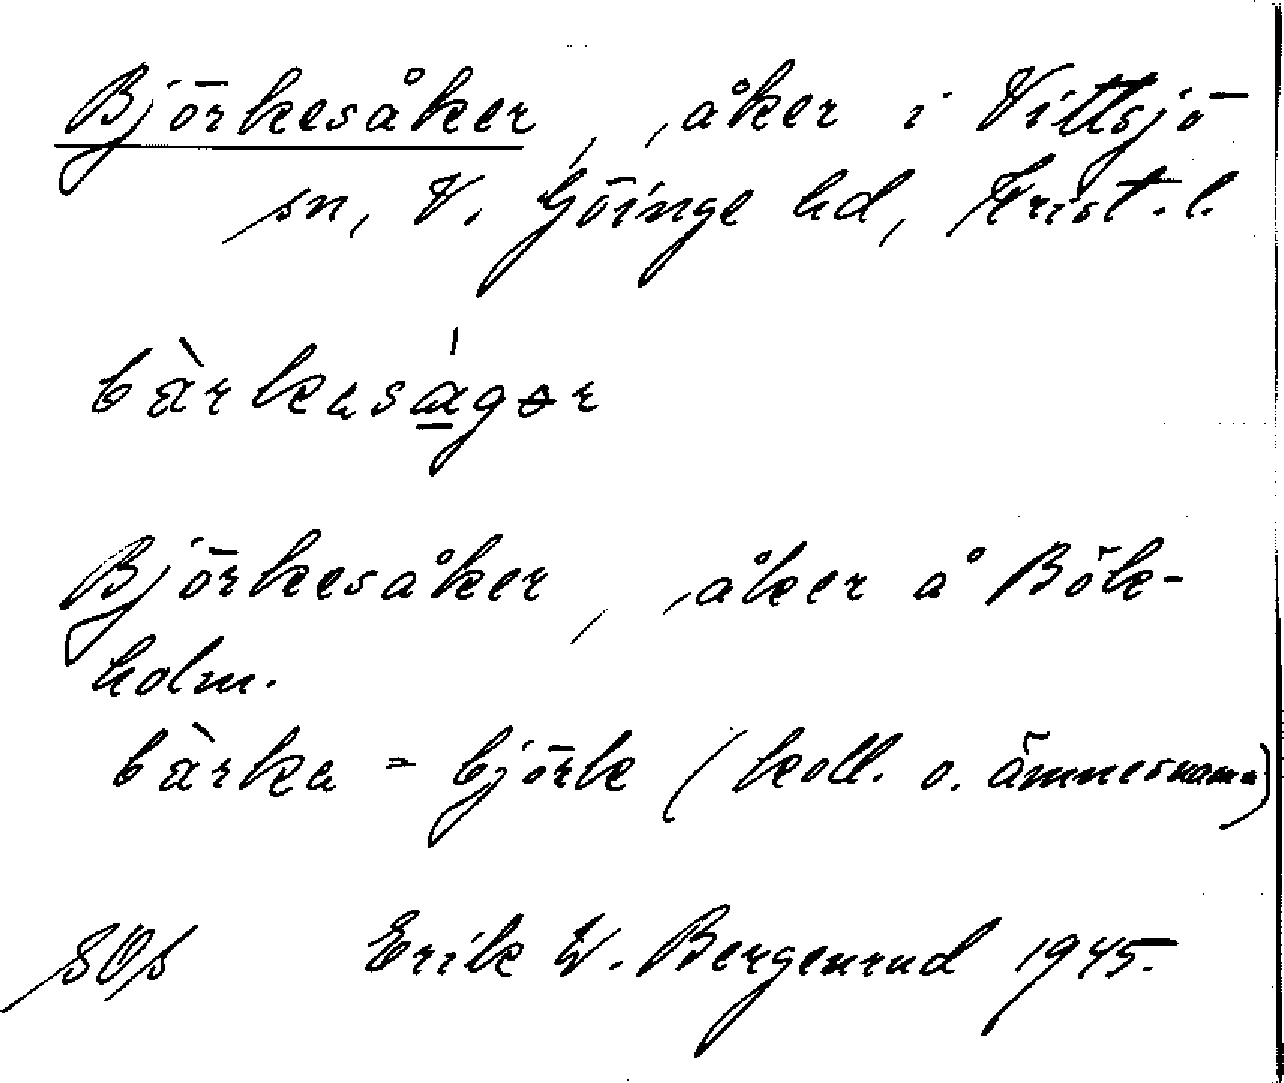 Björkesåker, åker i Vittsjö
sn, V. Göinge hd, Krist. l.
bàrkasa̲̍gər
Björkesåker, åker å Bök-
holm.
bàrka = björk (koll. o. ämnesnamn)
Erik W. Bergenrud 1945.